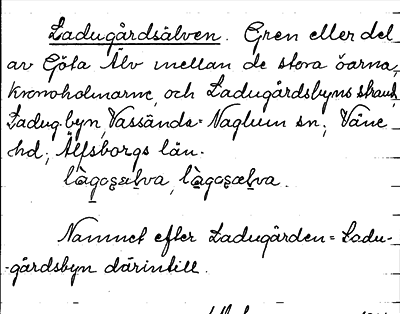 Ladugårdsälven. Gren eller del
av Göta Älv mellan de stora öarna,
Kronoholmarne, och Ladugårdsbyns strand,
Ladug.byn, Vassända-Naglum sn; Väne
hd; Älfsborgs län.
Namnet efter Ladugården = Ladu-
-gårdsbyn därintill.